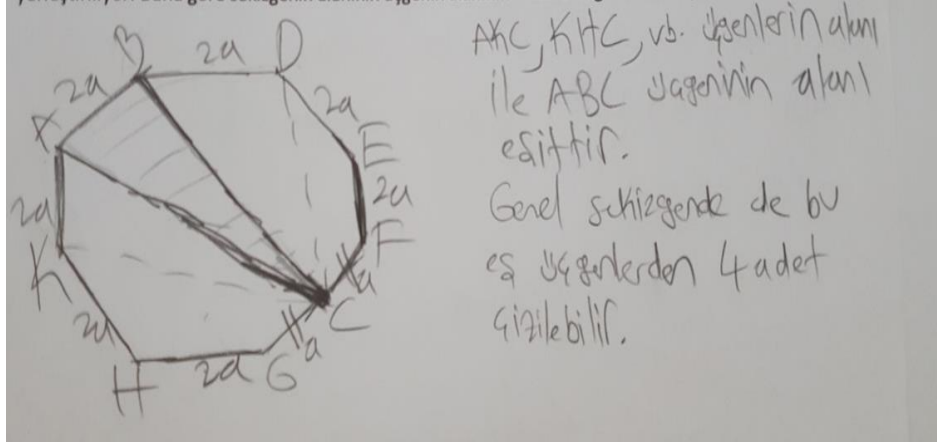 B 2a D
2a
2a
A
E
2a
2a
F
K
a
C
2a
a
H 2a G
AKC, KHC, vb. üçgenlerin alanı
ile ABC üçgeninin alanı
eşittir.
Genel sekizgende de bu
eş üçgenlerden 4 adet
çizilebilir.